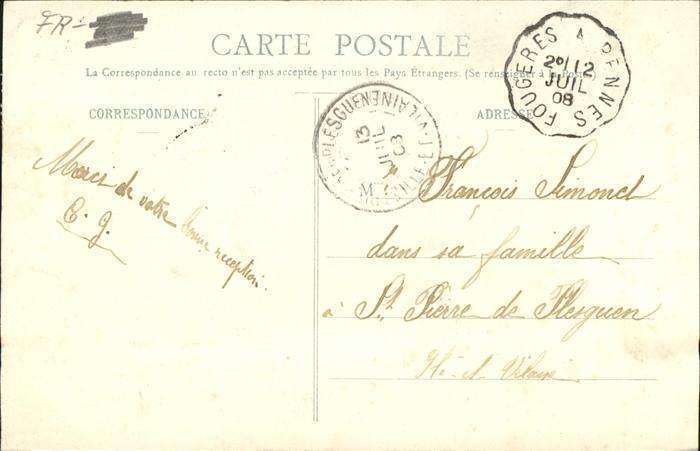 FR-
CARTE POSTALE
La Correspondance au recto n'est pas acceptée par tous les Pays Étrangers. (Se renseigner à la Poste)
CORRESPONDANCE
ADRESSE
FOUGERES A RENNES
2º 12
JUIL
08
PLESGUEN
13
JUIL
08
ILLE-ET-VILAINE
Merci de votre bonne reception.
C. J.
François Simonet
dans sa famille
à St Pierre de Plesguen
Ille-et-Vilaine